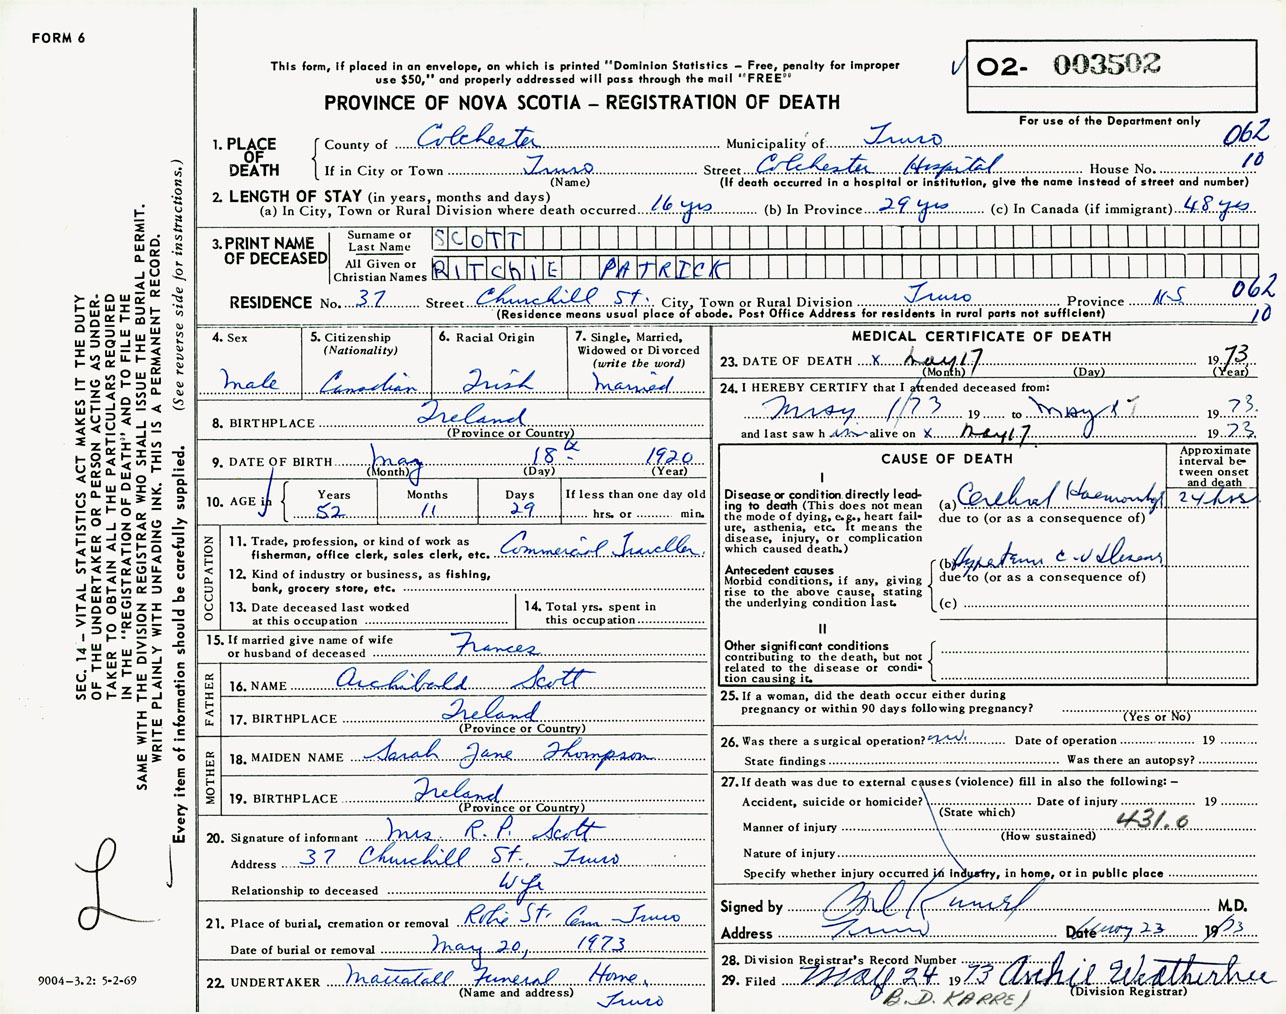 FORM 6
This form, if placed in an envelope, on which is printed "Dominion Statistics – Free, penalty for improper
use $50," and properly addressed will pass through the mail "FREE"
PROVINCE OF NOVA SCOTIA – REGISTRATION OF DEATH
O2- 003502
For use of the Department only
062
10
1. PLACE OF DEATH
County of Colchester Municipality of Truro
If in City or Town Truro Street Colchester Hospital House No.
(Name) (If death occurred in a hospital or institution, give the name instead of street and number)
2. LENGTH OF STAY (in years, months and days)
(a) In City, Town or Rural Division where death occurred 16 yrs (b) In Province 29 yrs (c) In Canada (if immigrant) 48 yrs
3. PRINT NAME OF DECEASED
Surname or Last Name SCOTT
All Given or Christian Names RITChIE PATRICK
RESIDENCE No. 37 Street Churchill St. City, Town or Rural Division Truro Province N.S. 062
(Residence means usual place of abode. Post Office Address for residents in rural parts not sufficient) 10
4. Sex
Male
5. Citizenship
(Nationality)
Canadian
6. Racial Origin
Irish
7. Single, Married,
Widowed or Divorced
(write the word)
Married
8. BIRTHPLACE Ireland
(Province or Country)
9. DATE OF BIRTH May 18th 1920
(Month) (Day) (Year)
10. AGE in
Years Months Days If less than one day old
52 11 29 hrs. or min.
OCCUPATION
11. Trade, profession, or kind of work as
fisherman, office clerk, sales clerk, etc. Commercial Traveller
12. Kind of industry or business, as fishing,
bank, grocery store, etc.
13. Date deceased last worked
at this occupation
14. Total yrs. spent in
this occupation
15. If married give name of wife
or husband of deceased Frances
FATHER
16. NAME Archibald Scott
17. BIRTHPLACE Ireland
(Province or Country)
MOTHER
18. MAIDEN NAME Sarah Jane Thompson
19. BIRTHPLACE Ireland
(Province or Country)
20. Signature of informant Mrs. R. P. Scott
Address 37 Churchill St. Truro
Relationship to deceased Wife
21. Place of burial, cremation or removal Robie St. Cem. Truro
Date of burial or removal May 20, 1973
22. UNDERTAKER Mattatall Funeral Home,
(Name and address) Truro
MEDICAL CERTIFICATE OF DEATH
23. DATE OF DEATH x May 17 1973
(Month) (Day) (Year)
24. I HEREBY CERTIFY that I attended deceased from:
May 1/73 19 to May 17 1973
and last saw h im alive on x May 17. 1973.
CAUSE OF DEATH
Approximate
interval be-
tween onset
and death
I
Disease or condition directly lead-
ing to death (This does not mean
the mode of dying, e.g., heart fail-
ure, asthenia, etc. It means the
disease, injury, or complication
which caused death.)
(a) Cerebral Haemorrhage 24 hrs
due to (or as a consequence of)
Antecedent causes
Morbid conditions, if any, giving
rise to the above cause, stating
the underlying condition last.
(b) C-V Disease
due to (or as a consequence of)
(c)
II
Other significant conditions
contributing to the death, but not
related to the disease or condi-
tion causing it.
25. If a woman, did the death occur either during
pregnancy or within 90 days following pregnancy?
(Yes or No)
26. Was there a surgical operation? no. Date of operation 19
State findings Was there an autopsy?
27. If death was due to external causes (violence) fill in also the following: –
Accident, suicide or homicide? Date of injury 19
(State which)
Manner of injury 431.0
(How sustained)
Nature of injury
Specify whether injury occurred in industry, in home, or in public place
Signed by M.D.
Address Truro Date May 23 1973
28. Division Registrar's Record Number
29. Filed May 24 1973 Archie Weatherbee
(Division Registrar)
B.D. KARREL
SEC. 14 – VITAL STATISTICS ACT MAKES IT THE DUTY
OF THE UNDERTAKER OR PERSON ACTING AS UNDER-
TAKER TO OBTAIN ALL THE PARTICULARS REQUIRED
IN THE "REGISTRATION OF DEATH" AND TO FILE THE
SAME WITH THE DIVISION REGISTRAR WHO SHALL ISSUE THE BURIAL PERMIT.
WRITE PLAINLY WITH UNFADING INK. THIS IS A PERMANENT RECORD.
Every item of information should be carefully supplied. (See reverse side for instructions.)
9004–3.2: 5-2-69